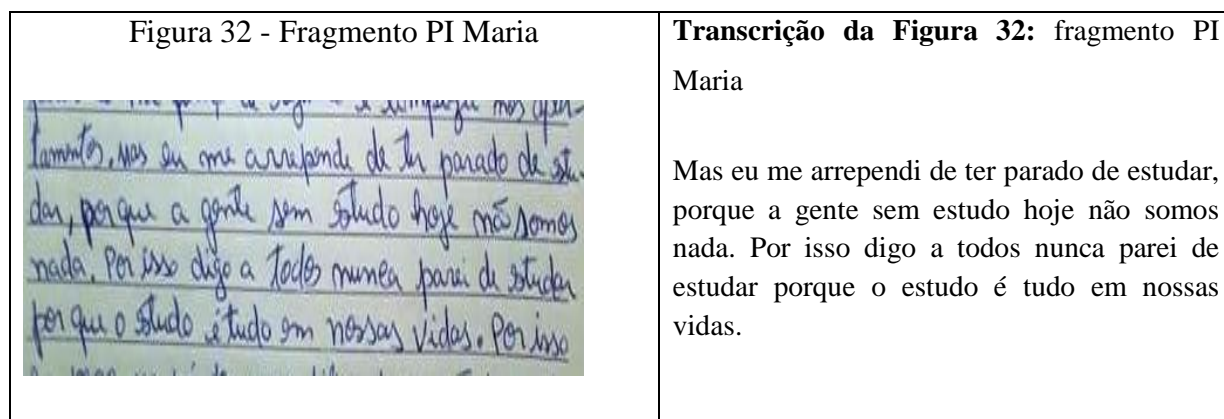 Figura 32 - Fragmento PI Maria
tamentos, mas eu me arrepende de ter parado de estu-
dar, porque a gente sem studo hoje não somos
nada. Por isso digo a todos nunca parei de studar
por que o studo é tudo em nossas vidas. Por isso
Transcrição da Figura 32: fragmento PI
Maria
Mas eu me arrependi de ter parado de estudar,
porque a gente sem estudo hoje não somos
nada. Por isso digo a todos nunca parei de
estudar porque o estudo é tudo em nossas
vidas.